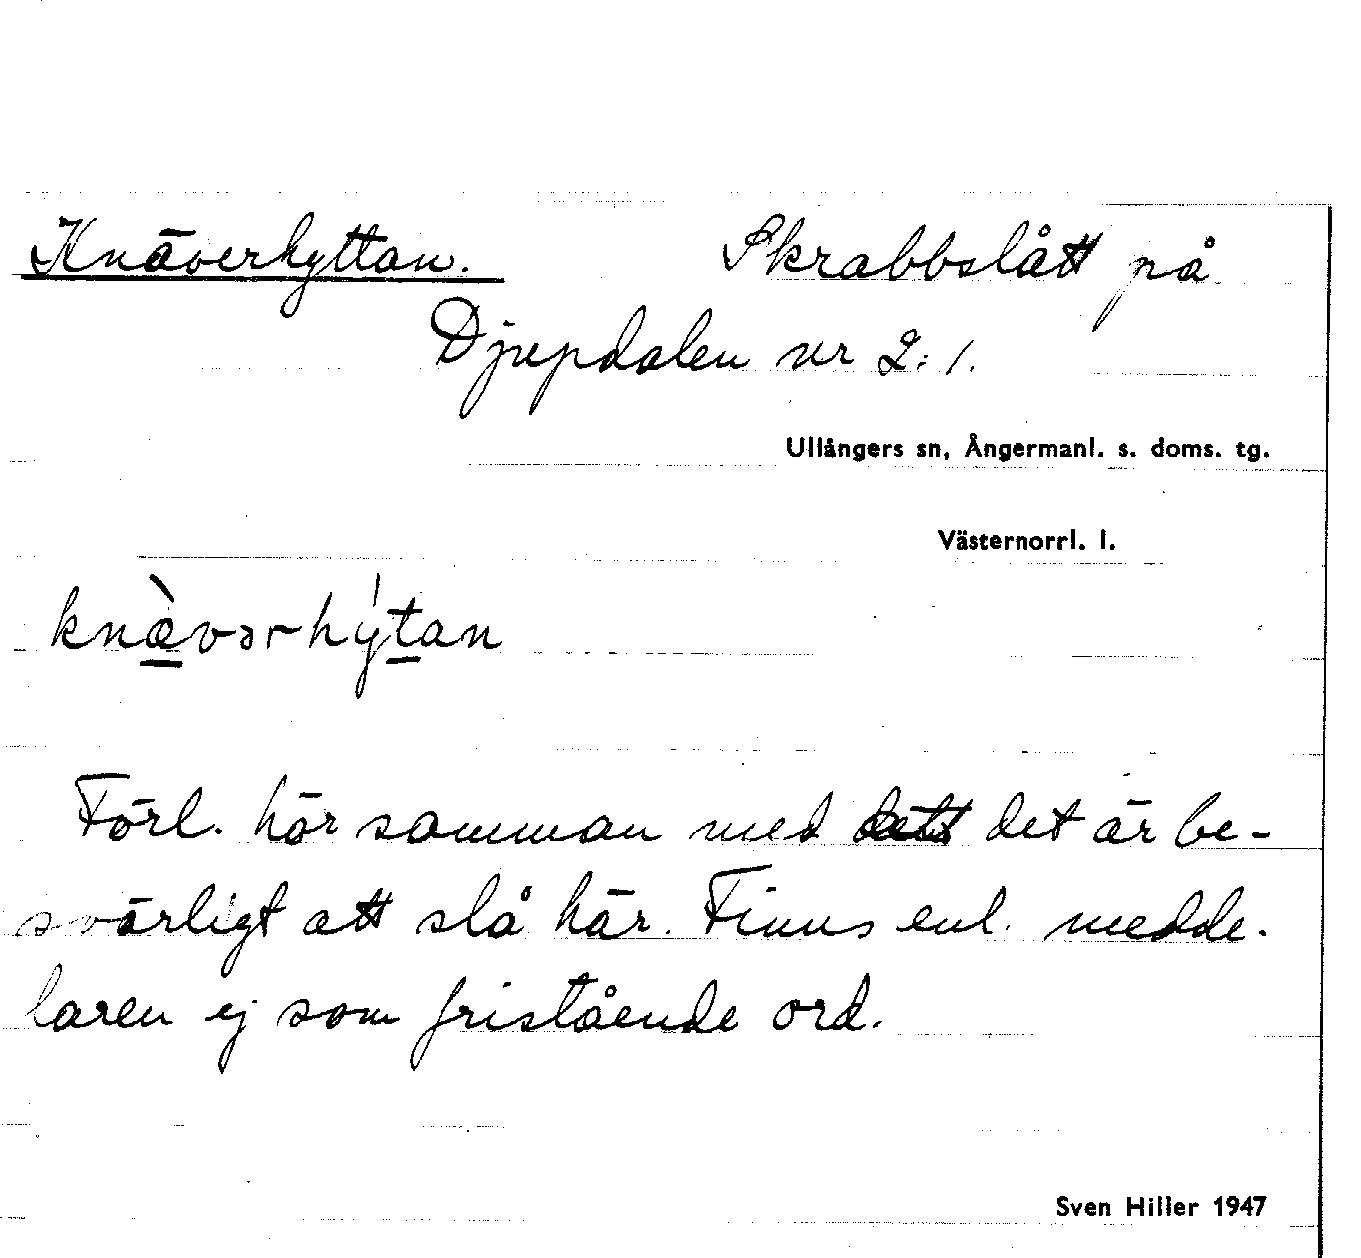 Knäverhyttan. Skrabbslått på
Djupdalen nr 2:1.
Ullångers sn, Ångermanl. s. doms. tg.
Västernorrl. l.
knæ̀vərhýtan
Förl. hör samman med det är be-
svärligt att slå här. Finns enl. medde-
laren ej som fristående ord.
Sven Hiller 1947